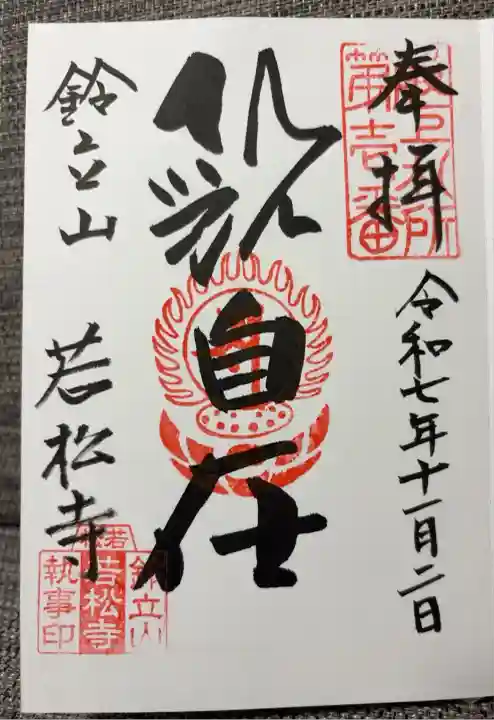 奉拝
最上札所
第壱番
令和七年十一月二日
観自在
鈴立山 若松寺
鈴立山
若松寺
執事印